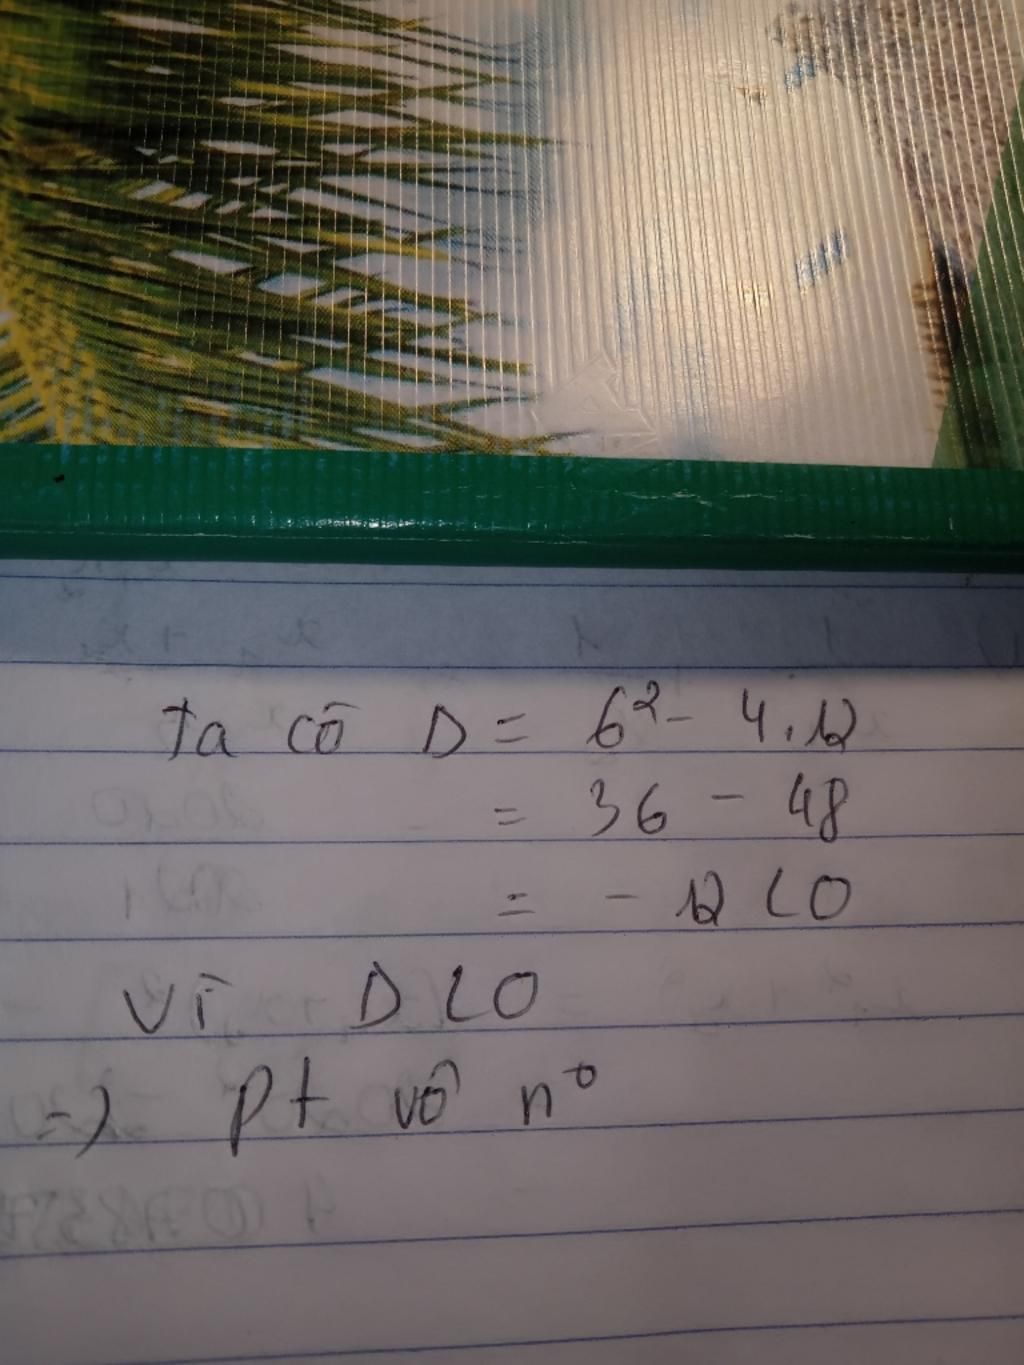 Ta có Δ = 6² - 4.12
= 36 - 48
= - 12 < 0
Vì Δ < 0
=> pt vô n°